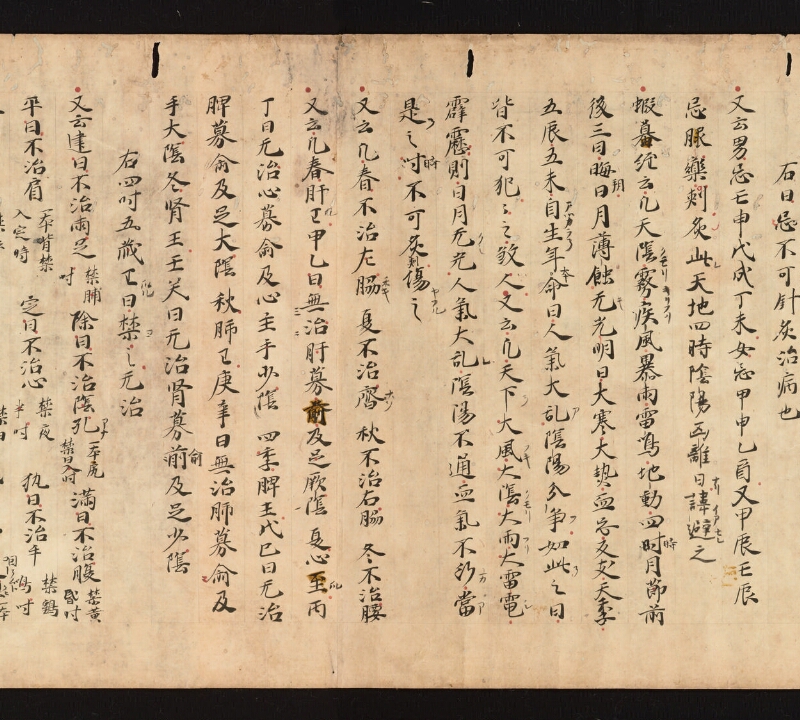 右日忌不可針灸治病也
又云男忌壬申戊戌丁未女忌甲申乙酉又甲辰壬辰
忌服藥刾灸此天地四時陰陽分離日諱避之
蝦蟇経云凡天陰霧疾風暴雨雷鳴地動四時月節前
後三日晦日月薄蝕无光明日大寒大熱
五辰五未自生年命日人氣大乱陰陽分争如此之日
皆不可犯々之致人又云凡天下大風大陰大雨大雷電
霹靂則日月无光人氣大乱陰陽不通血氣不行當
是之時不可灸刾傷之
又云凡春不治左脇夏不治臍秋不治右脇冬不治腰
又云凡春肝王甲乙日無治肝募前及足厥陰夏心王丙
丁日无治心募俞及心主手少陰四季脾王戊己日无治
脾募俞及足大陰秋肺王庚辛日無治肺募俞及
手大陰冬腎王壬癸日无治腎募俞及足少陰
右四時五蔵王日禁之无治
又云建日不治兩足 禁晡時 除日不治陰孔 一本尻 禁日入時 滿日不治腹 禁黄昏時
平日不治肩 一本背禁人定時 定日不治心 禁夜半時 執日不治手 禁鷄鳴時